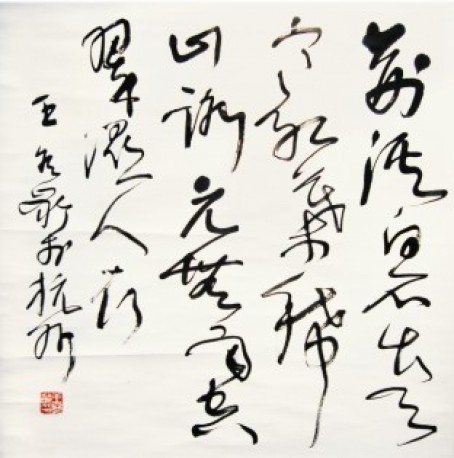 荊溪白石出天
寒紅葉稀
山路元無雨空
翠濕人衣
王冬齡於杭州